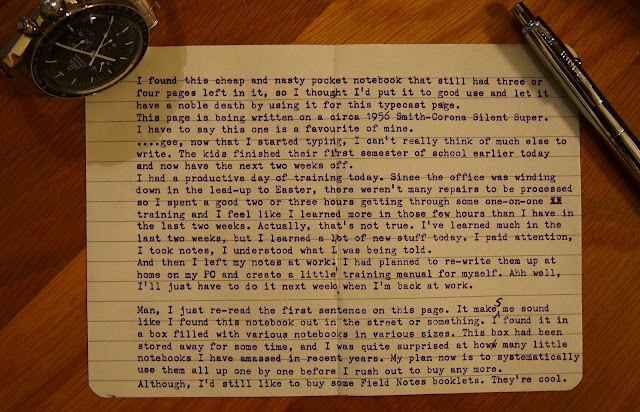 I found this cheap and nasty pocket notebook that still had three or
four pages left in it, so I thought I'd put it to good use and let it
have a noble death by using it for this typecast page.
This page is being written on a circa 1956 Smith-Corona Silent Super.
I have to say this one is a favourite of mine.
....gee, now that I started typing, I can't really think of much else to
write. The kids finished their first semester of school earlier today
and now have the next two weeks off.
I had a productive day of training today. Since the office was winding
down in the lead-up to Easter, there weren't many repairs to be processed
so I spent a good two or three hours getting through some one-on-one xx
training and I feel like I learned more in those few hours than I have in
the last two weeks. Actually, that's not true. I've learned much in the
last two weeks, but I learned a lot of new stuff today. I paid attention,
I took notes, I understood what I was being told.
And then I left my notes at work. I had planned to re-write them up at
home on my PC and create a little training manual for myself. Ahh well,
I'll just have to do it next week when I'm back at work.
Man, I just re-read the first sentence on this page. It makes me sound
like I found this notebook out in the street or something. I found it in
a box filled with various notebooks in various sizes. This box had been
stored away for some time, and I was quite surprised at how many little
notebooks I have amassed in recent years. My plan now is to systematically
use them all up one by one before I rush out to buy any more.
Although, I'd still like to buy some Field Notes booklets. They're cool.